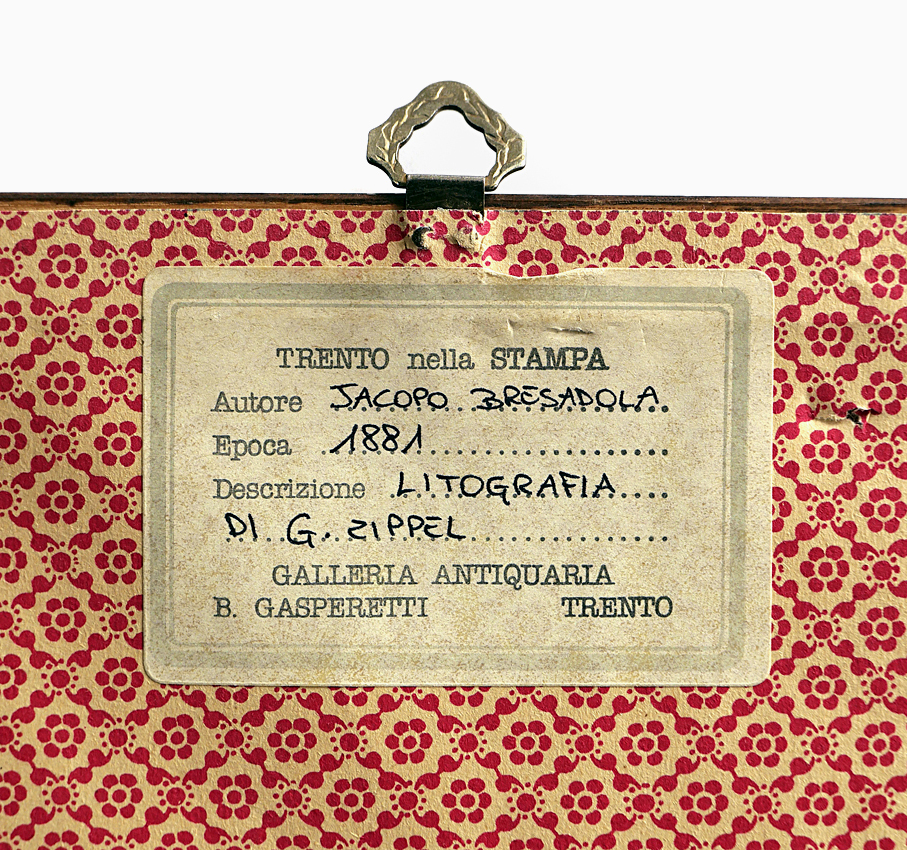 TRENTO nella STAMPA
Autore JACOPO BRESADOLA
Epoca 1881
Descrizione LITOGRAFIA
DI G. ZIPPEL
GALLERIA ANTIQUARIA
B. GASPERETTI TRENTO